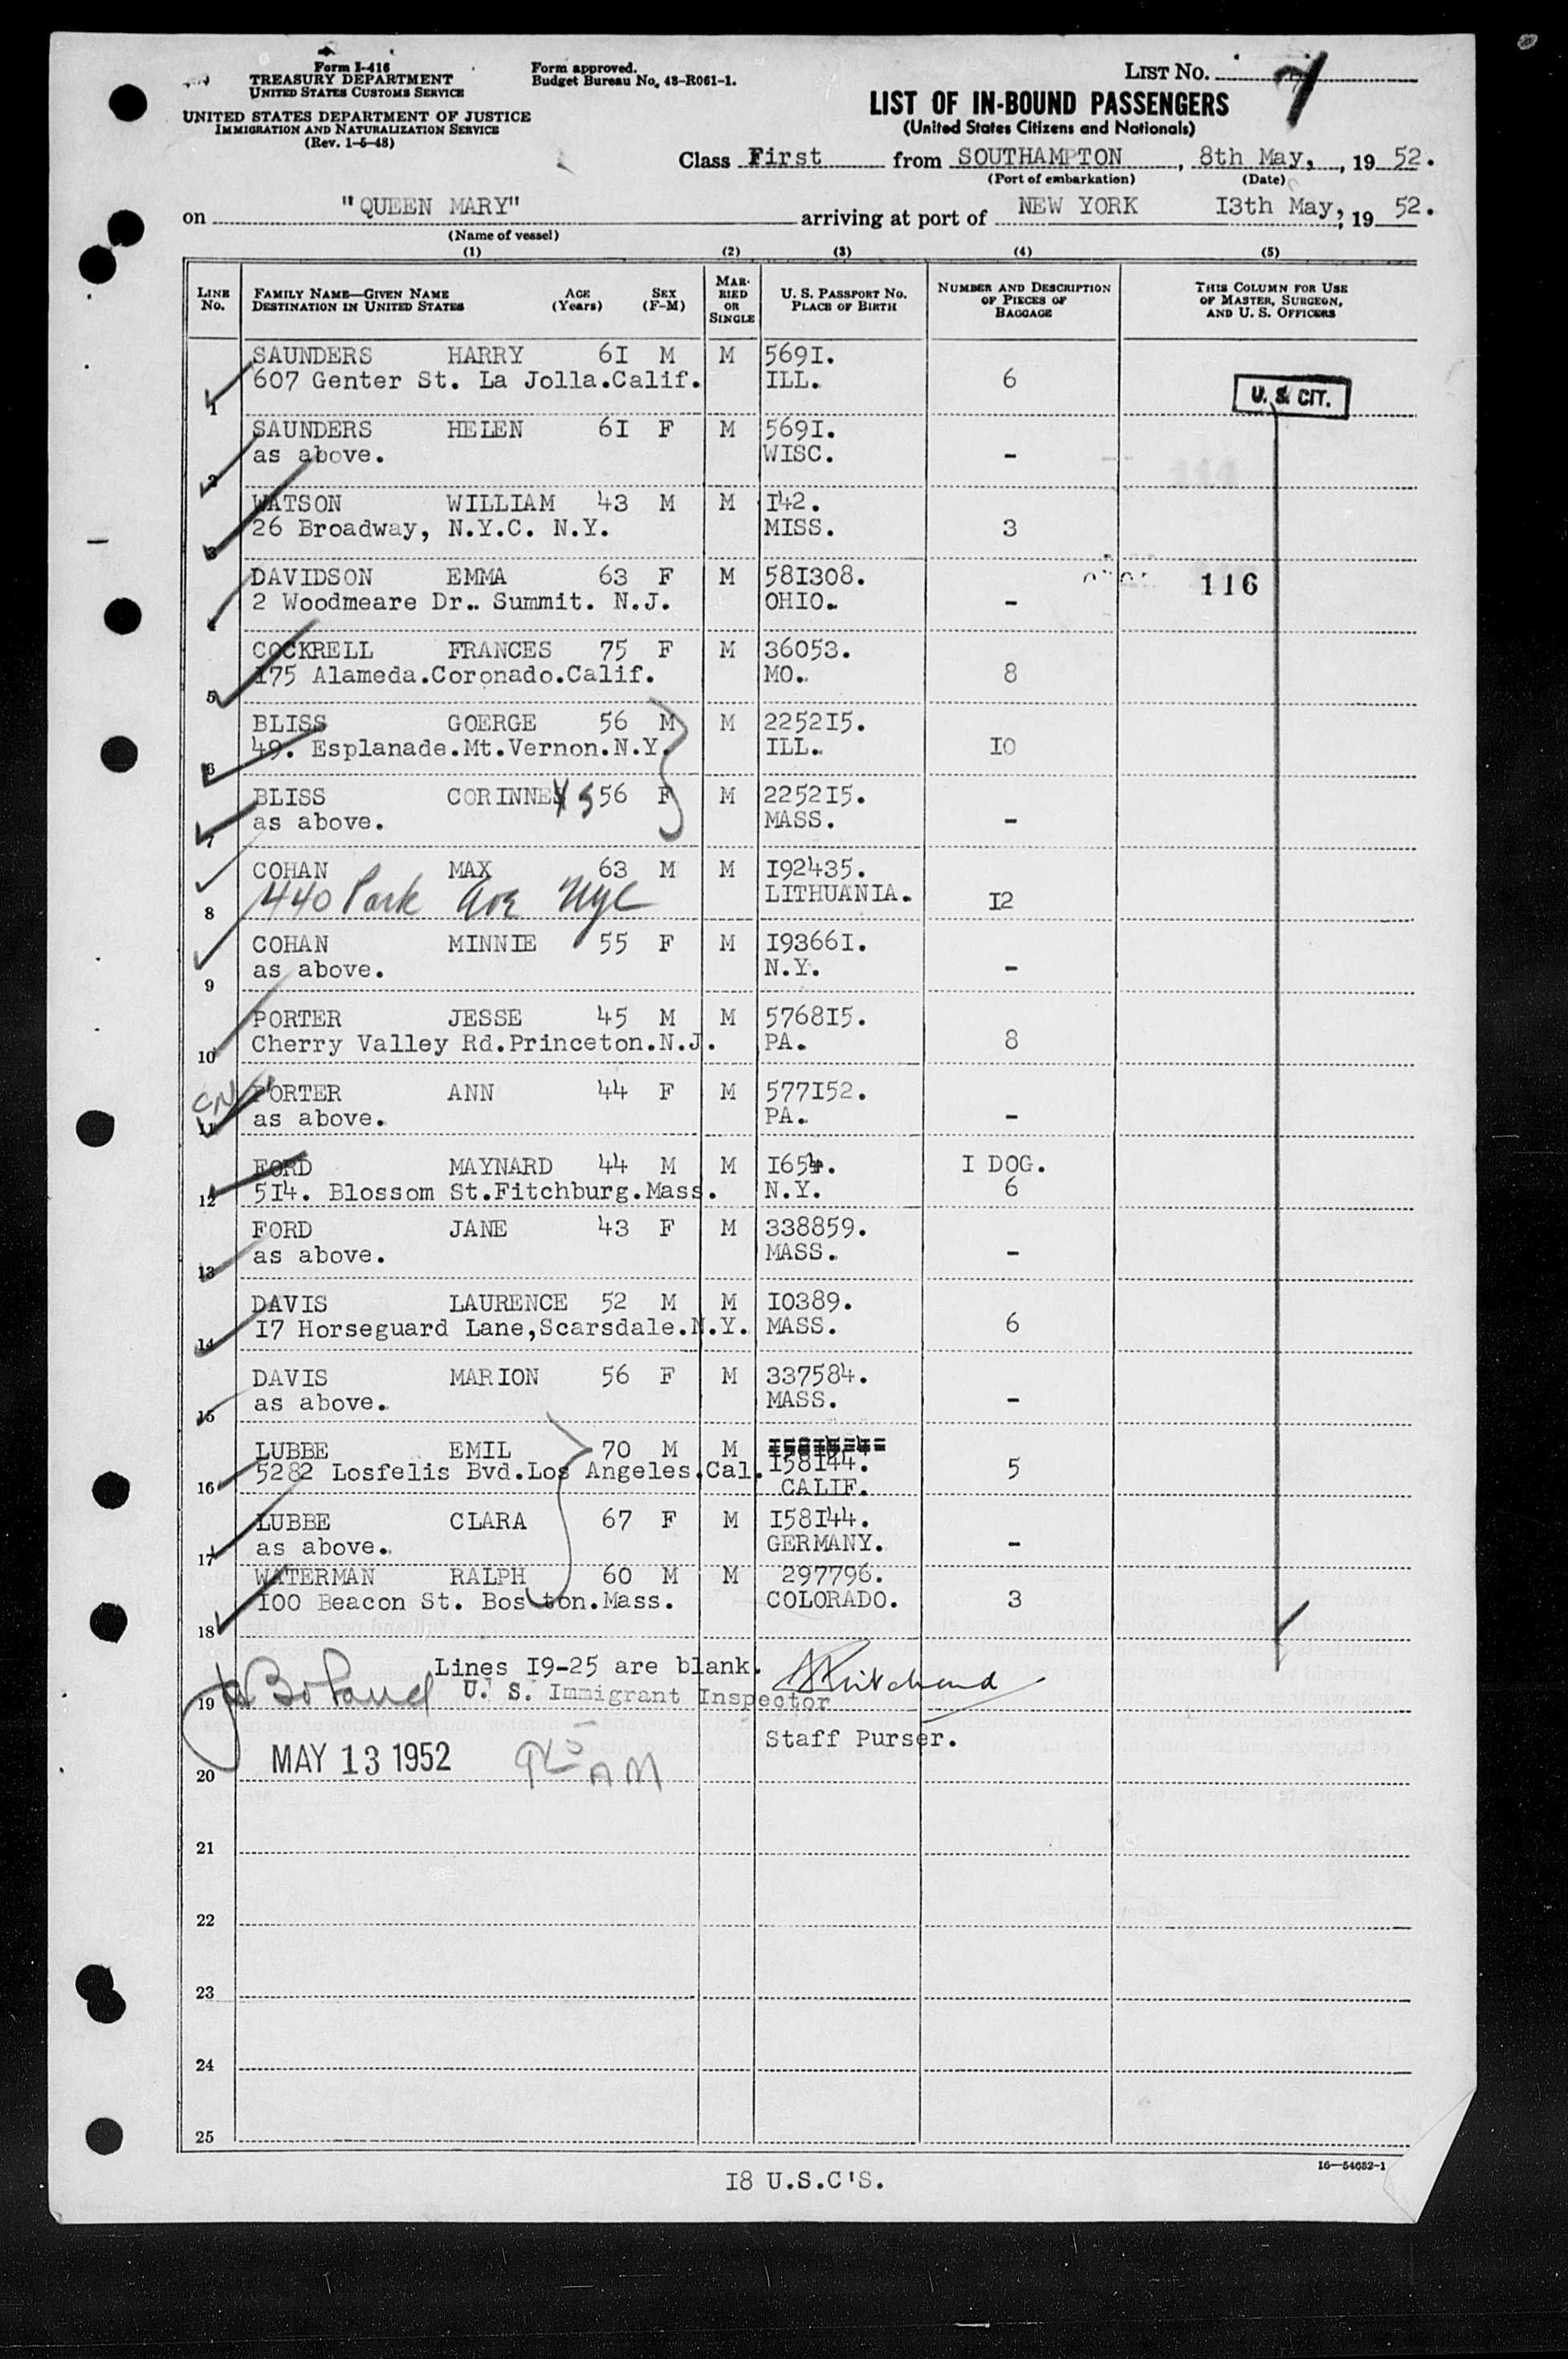 Form I-416
TREASURY DEPARTMENT
UNITED STATES CUSTOMS SERVICE
UNITED STATES DEPARTMENT OF JUSTICE
IMMIGRATION AND NATURALIZATION SERVICE
(Rev. 1-5-48)
Form approved.
Budget Bureau No. 43-R061-1.
LIST No. 7
LIST OF IN-BOUND PASSENGERS
(United States Citizens and Nationals)
Class First from SOUTHAMPTON, 8th May, , 19 52.
(Port of embarkation) (Date)
on "QUEEN MARY" arriving at port of NEW YORK 13th May, 19 52.
(Name of vessel)
(1) (2) (3) (4) (5)
LINE No. FAMILY NAME—GIVEN NAME DESTINATION IN UNITED STATES AGE (Years) SEX (F-M) MARRIED OR SINGLE U. S. PASSPORT No. PLACE OF BIRTH NUMBER AND DESCRIPTION OF PIECES OF BAGGAGE THIS COLUMN FOR USE OF MASTER, SURGEON, AND U. S. OFFICERS
SAUNDERS HARRY 6I M M 569I.
607 Genter St. La Jolla.Calif. ILL. 6
1 U. S. CIT.
SAUNDERS HELEN 6I F M 569I.
as above. WISC. -
2
WATSON WILLIAM 43 M M I42.
26 Broadway, N.Y.C. N.Y. MISS. 3
3
DAVIDSON EMMA 63 F M 58I308. 116
2 Woodmeare Dr.. Summit. N.J. OHIO. -
4
COCKRELL FRANCES 75 F M 36053.
I75 Alameda.Coronado.Calif. MO. 8
5
BLISS GOERGE 56 M M 2252I5.
49. Esplanade.Mt.Vernon.N.Y. ILL. IO
6
BLISS CORINNE 56 F M 2252I5.
as above. MASS. -
7
COHAN MAX 63 M M I92435.
440 Park Ave NYC LITHUANIA. I2
8
COHAN MINNIE 55 F M I9366I.
as above. N.Y. -
9
PORTER JESSE 45 M M 5768I5.
Cherry Valley Rd.Princeton.N.J. PA. 8
10
PORTER ANN 44 F M 577I52.
as above. PA. -
11
FORD MAYNARD 44 M M I654. I DOG.
5I4. Blossom St.Fitchburg.Mass. N.Y. 6
12
FORD JANE 43 F M 338859.
as above. MASS. -
13
DAVIS LAURENCE 52 M M I0389.
I7 Horseguard Lane,Scarsdale.N.Y. MASS. 6
14
DAVIS MARION 56 F M 337584.
as above. MASS. -
15
LUBBE EMIL 70 M M
5282 Losfelis Bvd.Los Angeles.Cal. I58I44. 5
16 CALIF.
LUBBE CLARA 67 F M I58I44.
as above. GERMANY. -
17
WATERMAN RALPH 60 M M 297796.
I00 Beacon St. Boston.Mass. COLORADO. 3
18
Lines I9-25 are blank.
U. S. Immigrant Inspector
19
Staff Purser.
MAY 13 1952 AM
20
21
22
23
24
25
16—54652-1
I8 U.S.C'S.